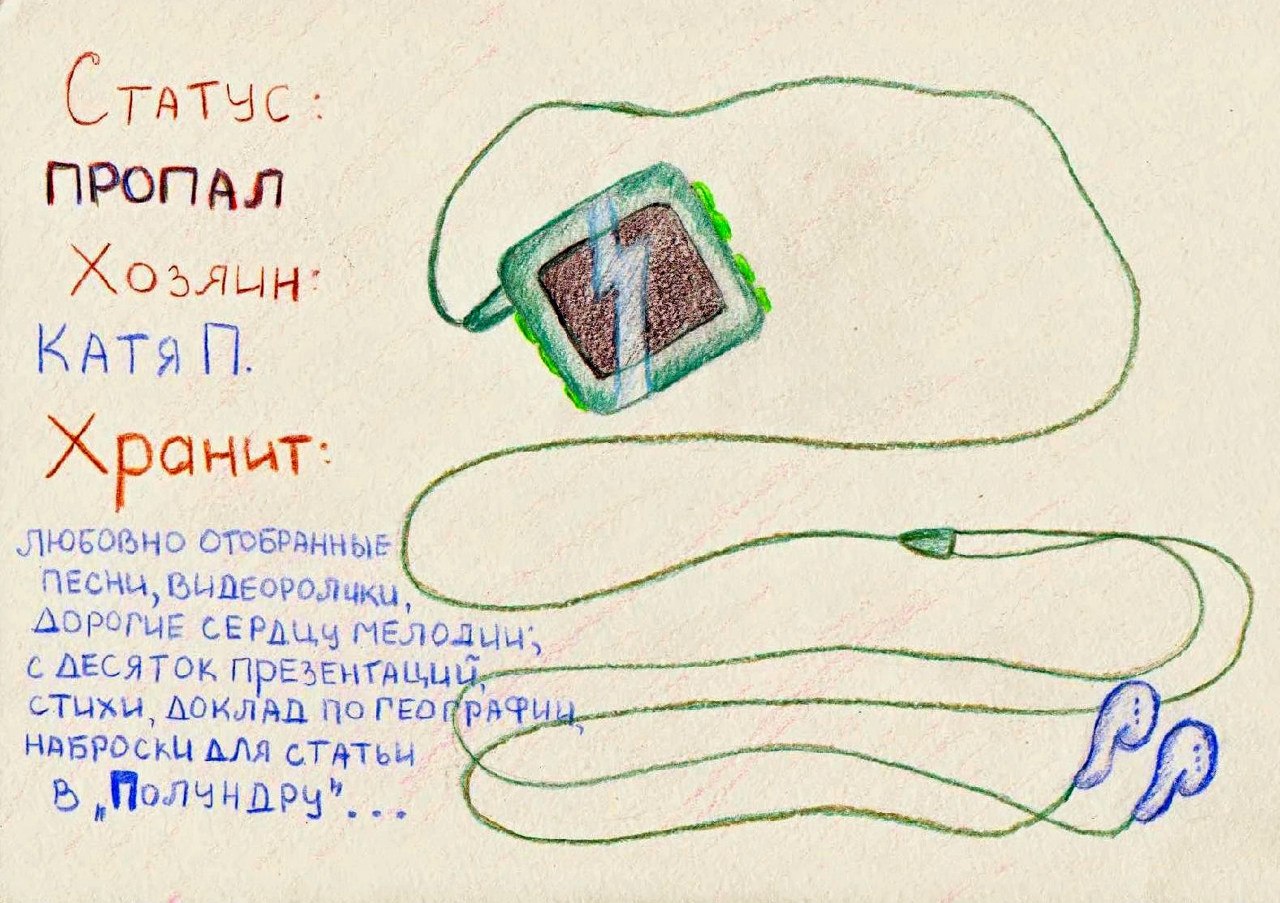 Статус:
ПРОПАЛ
Хозяин:
КАТЯ П.
Хранит:
ЛЮБОВНО ОТОБРАННЫЕ
ПЕСНИ, ВИДЕОРОЛИКИ,
ДОРОГИЕ СЕРДЦУ МЕЛОДИИ;
С ДЕСЯТОК ПРЕЗЕНТАЦИЙ,
СТИХИ, ДОКЛАД ПО ГЕОГРАФИИ,
НАБРОСКИ ДЛЯ СТАТЬИ
В „ПОЛУНДРУ"...